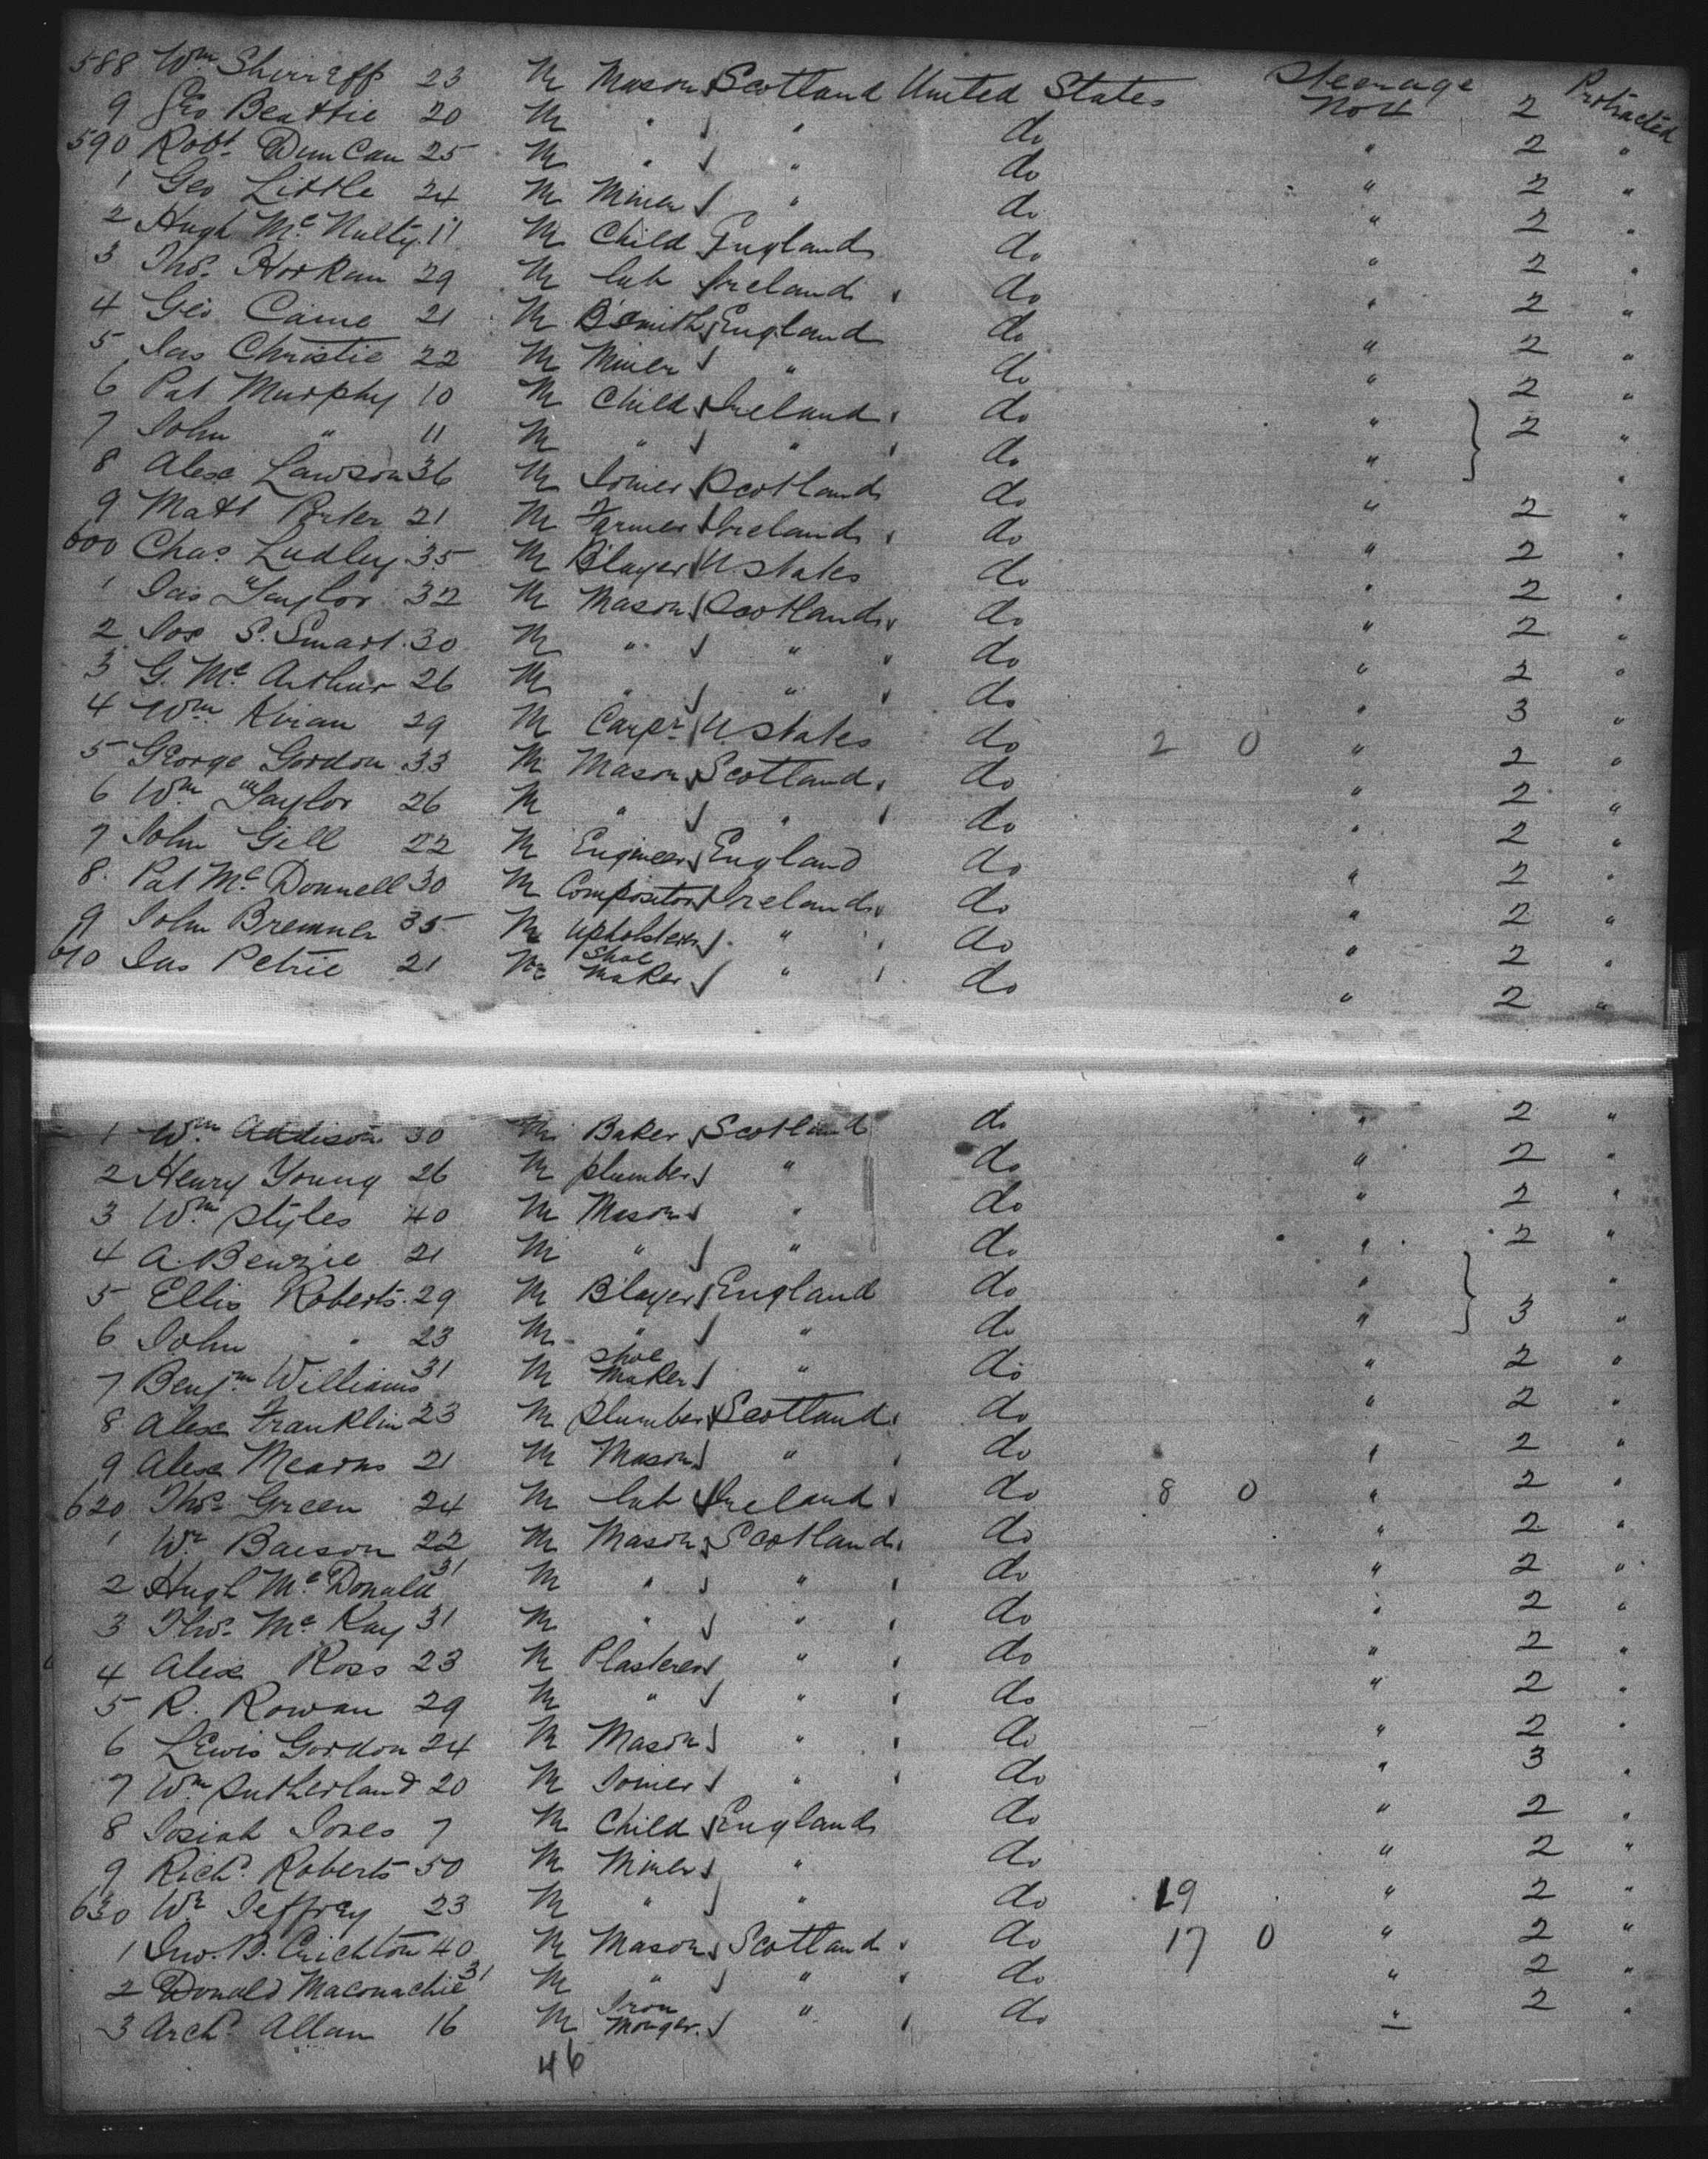 588 Wm Shirreff 23 M Mason Scotland United States Steerage No 4 2 Protracted
9 Geo Beattie 20 M " " do " 2 "
590 Robt Duncan 25 M " " do " 2 "
1 Geo Little 24 M Miner " do " 2 "
2 Hugh McNulty 11 M Child England do " 2 "
3 Thos Horkan 29 M Lab Ireland do " 2 "
4 Geo Caine 21 M B'smith England do " 2 "
5 Jas Christie 22 M Miner " do " 2 "
6 Pat Murphy 10 M Child Ireland do " 2 "
7 John " 11 M " " do " "
8 Alex Lawson 36 M Joiner Scotland do " 2 "
9 Matt Porter 21 M Farmer Ireland do " 2 "
600 Chas Ludley 35 M B'layer U States do " 2 "
1 Jas Taylor 32 M Mason Scotland do " 2 "
2 Jos S. Smart 30 M " " do " 2 "
3 G. McArthur 26 M " " do " 3 "
4 Wm Kirian 29 M Carpr U States do 2 0 " 2 "
5 George Gordon 33 M Mason Scotland do " 2 "
6 Wm Taylor 26 M " " do " 2 "
7 John Gill 22 M Engineer England do " 2 "
8 Pat McDonnell 30 M Compositor Ireland do " 2 "
9 John Bremner 35 M Upholsterer " do " 2 "
610 Jas Petrie 21 M Shoe Maker " do " 2 "
1 Wm Addison 30 M Baker Scotland do " 2 "
2 Henry Young 26 M Plumber " do " 2 "
3 Wm Styles 40 M Mason " do " 2 "
4 A. Benzie 21 M " " do " 2 "
5 Ellis Roberts 29 M B'layer England do " "
6 John " 23 M " " do " 3 "
7 Benjm Williams 31 M Shoe Maker " do " 2 "
8 Alex Franklin 23 M Plumber Scotland do " 2 "
9 Alex Mearns 21 M Mason " do " 2 "
620 Thos Green 24 M Lab Ireland do 8 0 " 2 "
1 Wm Baeson 22 M Mason Scotland do " 2 "
2 Hugh McDonald 31 M " " do " 2 "
3 Thos McKay 31 M " " do " 2 "
4 Alex Ross 23 M Plasterer " do " 2 "
5 R. Rowan 29 M " " do " 2 "
6 Lewis Gordon 24 M Mason " do " 2 "
7 Wm Sutherland 20 M Joiner " do " 3 "
8 Josiah Jones 7 M Child England do " 2 "
9 Richd Roberts 50 M Miner " do " 2 "
630 Wm Jeffrey 23 M " " do 19 " 2 "
1 Jno. B. Crichton 40 M Mason Scotland do 17 0 " 2 "
2 Donald Maconachie 31 M " " do " 2 "
3 Archd Allan 16 M Iron Monger " do " 2 "
46